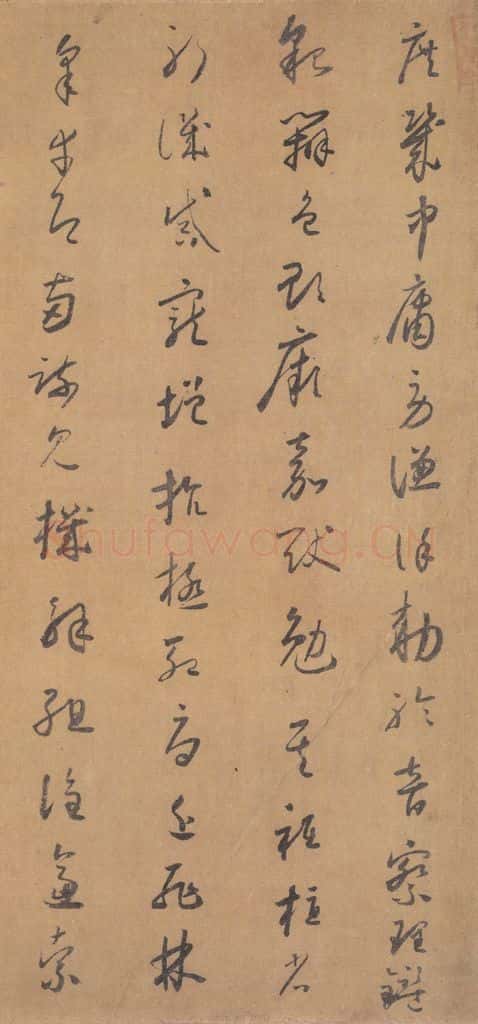 庶幾中庸勞謙謹勅聆音察理鑑
貌辨色貽厥嘉猷勉其祗植省
躬譏誡寵增抗極殆辱近恥林
皋幸即兩疏見機解組誰逼索
shufawang.CN